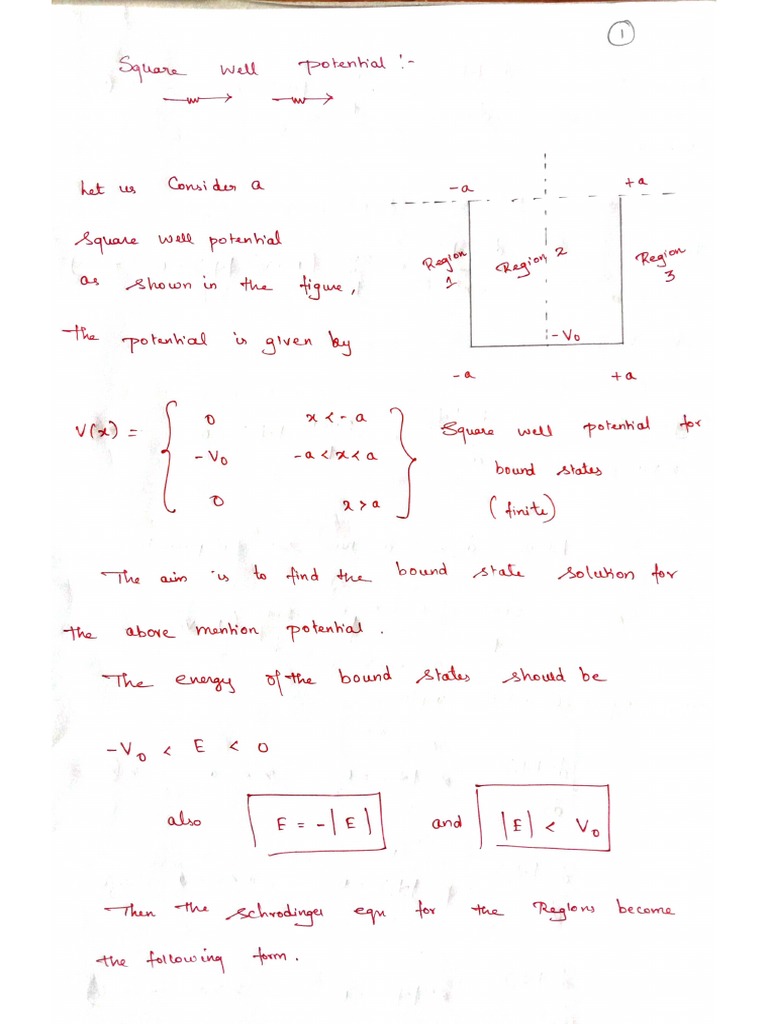 1
Square well potential :-
Let us Consider a
square well potential
as shown in the figure,
the potential is given by
-a +a
Region 1
Region 2
Region 3
-V₀
-a +a
V(x) = { 0 x < -a
-V₀ -a < x < a
0 x > a }
Square well potential for
bound states
(finite)
The aim is to find the bound state solution for
the above mention potential.
The energy of the bound states should be
-V₀ < E < 0
also E = -|E| and |E| < V₀
Then the schrodinger eqn for the Regions become
the following form.